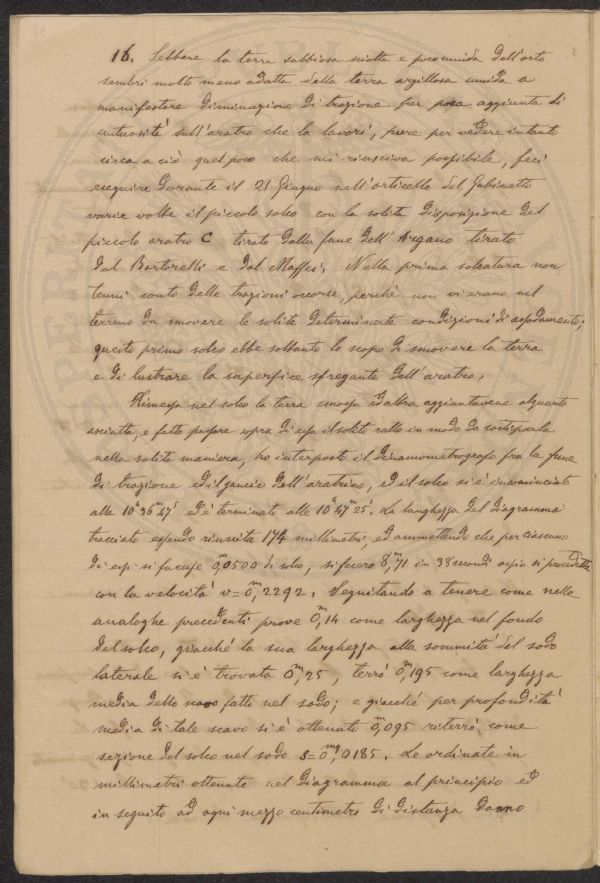 16. Sebbene la terra sabbiosa sciolta e poco umida dell'orto
sembri molto meno adatta della terra argillosa umida a
manifestare diminuzione di trazione per poca aggiunta di
untuosità sull'aratro che la lavori, pure per vedere intanto
circa a ciò quel poco che mi riusciva possibile, feci
eseguire durante il 21 Giugno nell'orticello del Gabinetto
varie volte il piccolo solco con la solita disposizione del
piccolo aratro C tirato dalla fune dell'Argano tirato
dal Bartorelli e dal Maffei. Nella prima solcatura non
tenni conto delle trazioni occorse, perchè non vi erano nel
terreno da smovere le solite determinate condizioni di assodamento;
questo primo solco ebbe soltanto lo scopo di smovere la terra
e di lustrare la superfice sfregante dell'aratro.
Rimessa nel solco la terra smossa ed altra aggiuntavene alquanto
asciutta, e fatto passare sopra di essa il solito rullo in modo da costiparla
nella solita maniera, ho interposto il dinamometrografo fra la fune
di trazione ed il gancio dell'aratrino, ed il solco si è incominciato
alle 10h 36m 47s ed è terminato alle 10h 47m 25s. La lunghezza del diagramma
tracciato essendo riuscita 174 millimetri, ed ammettendo che per ciascuno
di essi si facesse 0,m0500 di solco, si fecero 8,m71 in 38 secondi ossia si procedette
con la velocità v=0,m2292. Seguitando a tenere come nelle
analoghe precedenti prove 0,m14 come larghezza nel fondo
del solco, giacché la sua larghezza alla sommità del sodo
laterale si è trovata 0,m25, terrò 0,m195 come larghezza
media dello scavo fatto nel sodo; e giacché per profondità
media di tale scavo si è ottenuto 0,m095 riterrò come
sezione del solco nel sodo s=0,mq0185. Le ordinate in
millimetri ottenute nel diagramma al principio ed
in seguito ad ogni mezzo centimetro di distanza danno